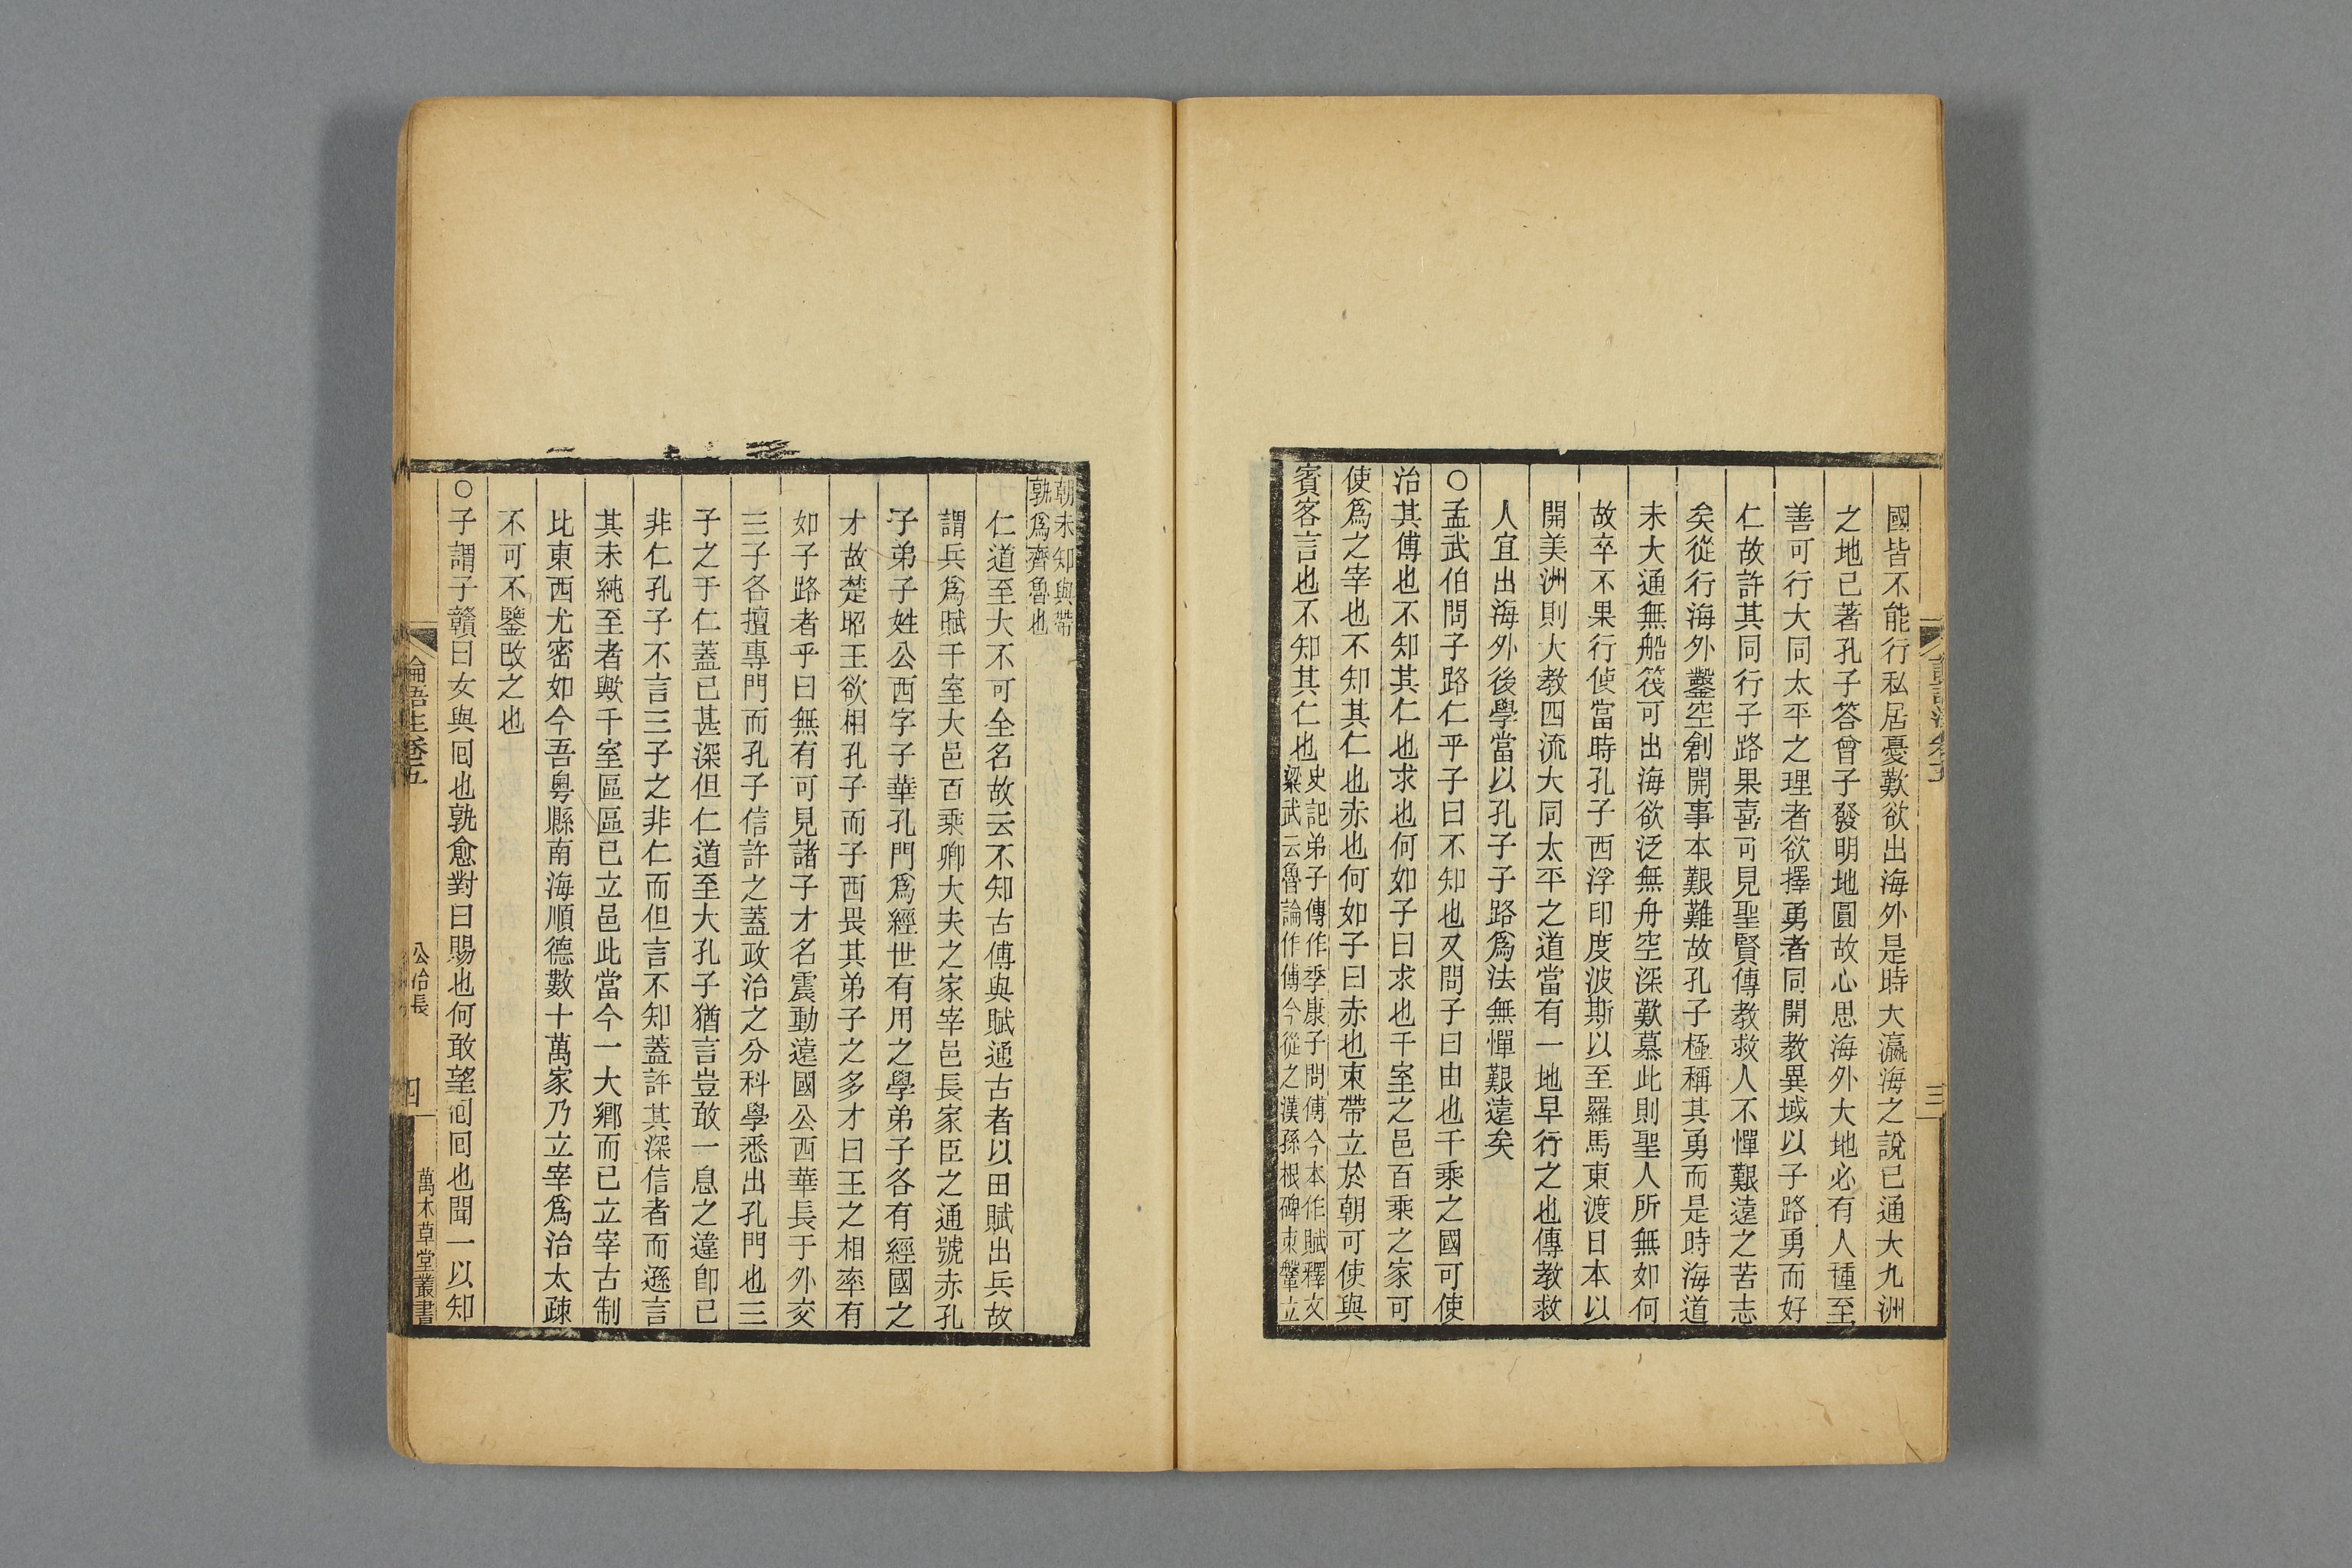 國皆不能行私居憂歎欲出海外是時大瀛海之說已通大九洲
之地已著孔子答曾子發明地圓故心思海外大地必有人種至
善可行大同太平之理者欲擇勇者同開教異域以子路勇而好
仁故許其同行子路果喜可見聖賢傳教救人不憚艱遠之苦志
矣從行海外鑿空創開事本艱難故孔子極稱其勇而是時海道
未大通無船筏可出海欲泛無舟空深歎慕此則聖人所無如何
故卒不果行使當時孔子西浮印度波斯以至羅馬東渡日本以
開美洲則大教四流大同太平之道當有一地早行之也傳教救
人宜出海外後學當以孔子子路為法無憚艱遠矣
○孟武伯問子路仁乎子曰不知也又問子曰由也千乘之國可使
治其傅也不知其仁也求也何如子曰求也千室之邑百乘之家可
使為之宰也不知其仁也赤也何如子曰赤也束帶立於朝可使與
賓客言也不知其仁也
史記弟子傳作季康子問傅今本作賦釋文
梁武云魯論作傅今從之漢孫根碑束鞶立
三
朝未知與帶
孰為齊魯也
仁道至大不可全名故云不知古傅與賦通古者以田賦出兵故
謂兵為賦千室大邑百乘卿大夫之家宰邑長家臣之通號赤孔
子弟子姓公西字子華孔門為經世有用之學弟子各有經國之
才故楚昭王欲相孔子而子西畏其弟子之多才曰王之相率有
如子路者乎曰無有可見諸子才名震動遠國公西華長于外交
三子各擅專門而孔子信許之蓋政治之分科學悉出孔門也三
子之于仁蓋已甚深但仁道至大孔子猶言豈敢一息之違卽已
非仁孔子不言三子之非仁而但言不知蓋許其深信者而遜言
其未純至者歟千室區區已立邑此當今一大鄉而已立宰古制
比東西尤密如今吾粵縣南海順德數十萬家乃立宰為治太疎
不可不鑒改之也
○子謂子贛曰女與囘也孰愈對曰賜也何敢望囘囘也聞一以知
論語注卷五
公冶長
四
萬木草堂叢書